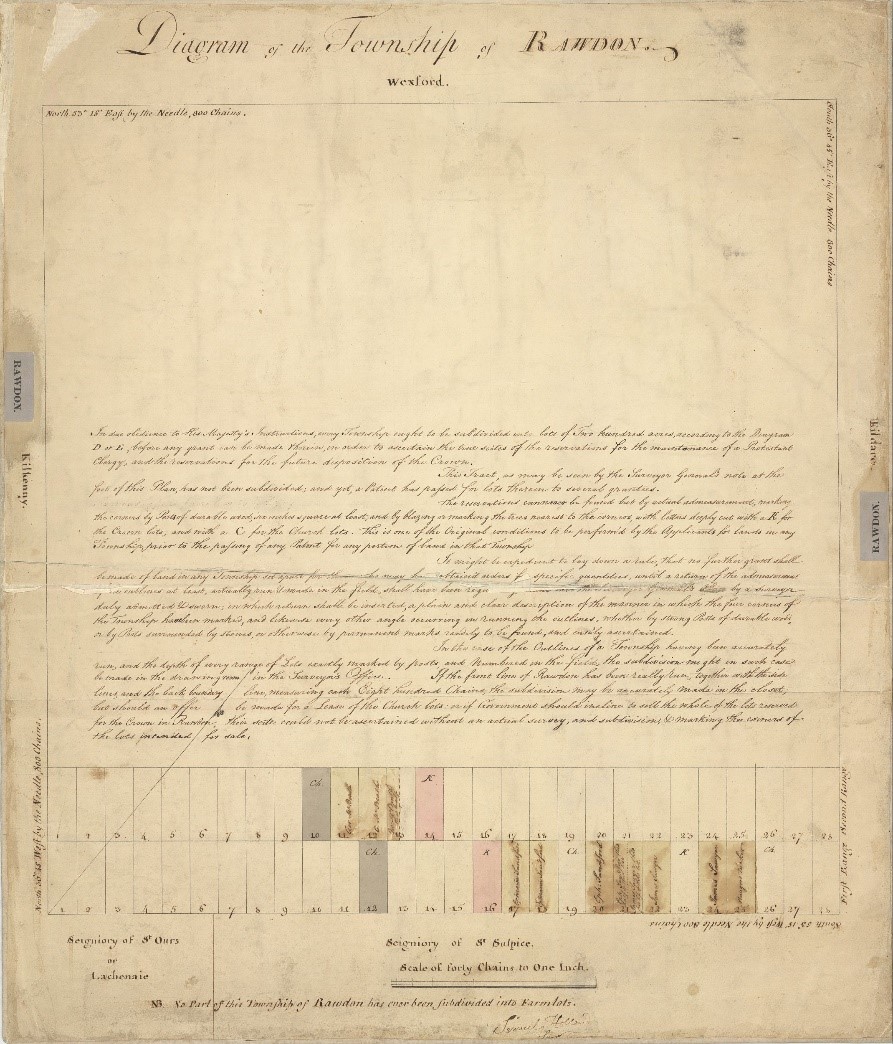 Diagram of the Township of RAWDON.
Wexford.
North 53° 15' East by the Needle, 800 Chains.
South 36° 45' East by the Needle 800 Chains
RAWDON.
Kilkenny.
Kildare.
RAWDON.
In due obedience to His Majesty's Instructions, every Township ought to be subdivided into lots of Two hundred acres, according to the Diagram
D or E, before any grant can be made therein, in order to ascertain the true scites of the reservations for the maintenance of a Protestant
Clergy, and the reservations for the future disposition of the Crown.
This Tract, as may be seen by the Surveyor General's note at the
foot of this Plan, has not been subdivided; and yet, a Patent has passed for lots therein to several grantees.
The reservations cannot be found but by actual admeasurement, marking
the corners by Posts of durable wood, six inches square at least, and by blazing or marking the trees nearest to the corners, with letters deeply cut with a K for
the Crown lots, and with a C for the Church lots. This is one of the Original conditions to be performed by the Applicants for lands in any
Township, prior to the passing of any Patent for any portion of land in that Township
It might be expedient to lay down a rule, that no further grants shall
be made of land in any Township set apart for the may be specific quantities, until a return of the admeasured
outlines at least, actually run & made in the field, shall have been by a Surveyor
duly admitted & sworn; in which return shall be inserted, a plain and clear description of the manner in which the four corners of
the Township had been marked, and likewise every other angle occurring in running the outlines, whether by strong Posts of durable wood,
or by Posts surrounded by stones, or otherwise by permanent marks readily to be found, and easily ascertained.
In the case of the Outlines of a Township having been accurately
run, and the depth of every range of Lots exactly marked by posts and Numbered in the field, the subdivision might in such case
be made in the drawing room in the Surveyor's Office. If the front line of Rawdon has been really run, together with the side
lines, and the back boundary line, measuring each Eight Hundred Chains, the subdivision may be accurately made in the closet,
but should an offer be made for a Lease of the Church lots or if Government should incline to sell the whole of the lots reserved
for the Crown in Rawdon, their scite could not be ascertained without an actual survey, and subdivision, & marking the corners of
the lots intended for sale.
North 36° 45' West by the Needle, 800 Chains.
Ch. K
1 2 3 4 5 6 7 8 9 10 11 12 13 14 15 16 17 18 19 20 21 22 23 24 25 26 27 28
Second Range
Ch. K Ch. K Ch.
1 2 3 4 5 6 7 8 9 10 11 12 13 14 15 16 17 18 19 20 21 22 23 24 25 26 27 28
First Range
South 53° 15' West by the Needle 800 Chains
Seigniory of St Ours
or
Lachenaie
Seigniory of St Sulpice.
Scale of forty Chains to One Inch.
NB. No Part of this Township of Rawdon has ever been subdivided into Farm lots.